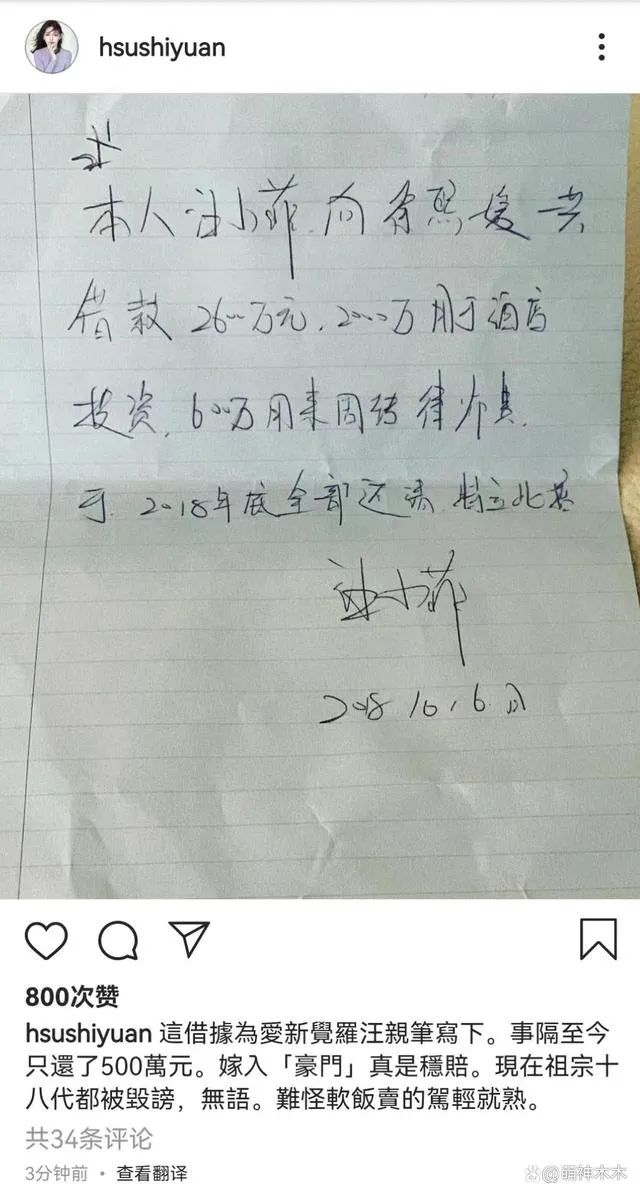 hsushiyuan
本人汪小菲.向徐熙媛共
借款2600万元.2000万用于酒店
投资.600万用来周转律师费.
于.2018年底全部还清.特立此据
汪小菲
2018.10.6.
800次赞
hsushiyuan 這借據為愛新覺羅汪親筆寫下。事隔至今
只還了500萬元。嫁入「豪門」真是穩賠。現在祖宗十
八代都被毀謗，無語。難怪軟飯賣的駕輕就熟。
共34条评论
3分钟前 • 查看翻译
@萌神木木